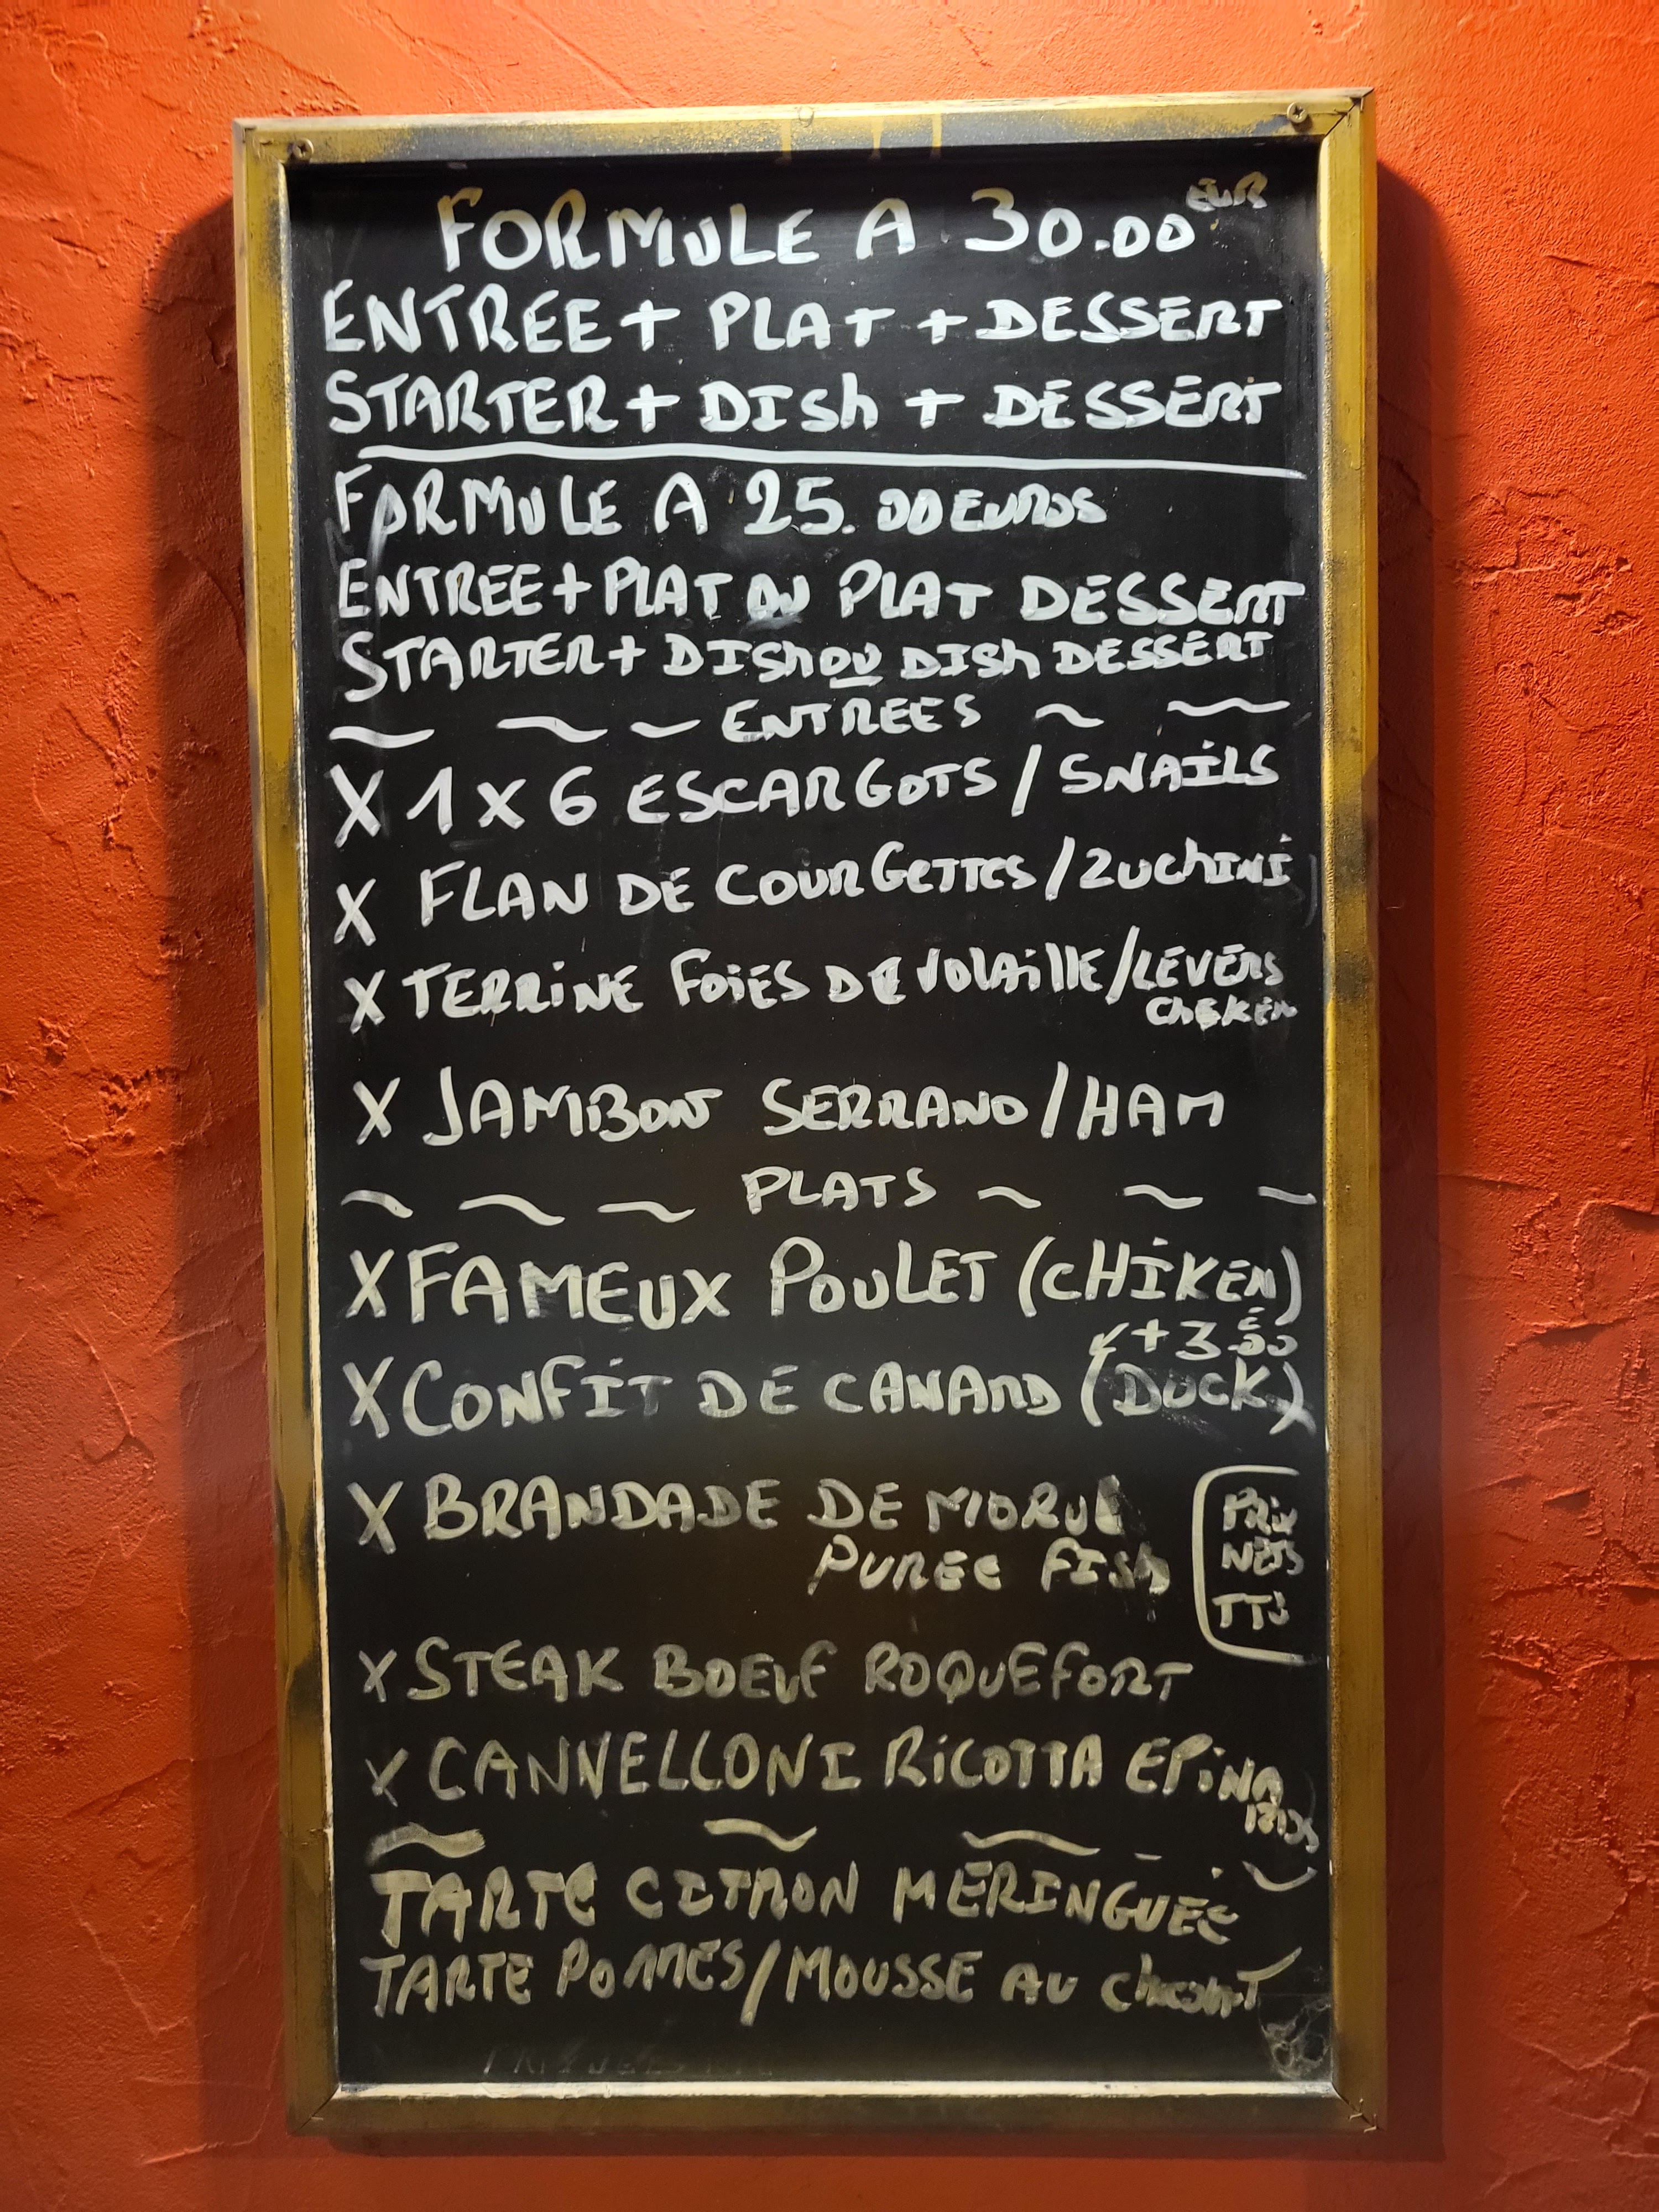 FORMULE A 30.00 EUR
ENTREE + PLAT + DESSERT
STARTER + DISh + DESSERT
FORMULE A 25.00 EUROS
ENTREE + PLAT OU PLAT DESSERT
STARTER + DISh OU DISh DESSERT
~ ~ ~ ENTREES ~ ~
X 1 X 6 ESCARGOTS / SNAILS
X FLAN DE COURGETTES / ZUChINI
X TERRINE FOIES DE VOLAILLE / LEVERS
ChEKEN
X JAMBON SERRANO / HAM
~ ~ ~ PLATS ~ ~ ~
X FAMEUX POULET (CHIKEN)
+ 3.50 €
X CONFIT DE CANARD (DUCK)
X BRANDADE DE MORUE
PUREE FISh
PRIX
NETS
TTC
X STEAK BOEUF ROQUEFORT
X CANNELLONI RICOTTA EPINA
RDS
~ ~ ~
TARTE CITRON MERINGUEE
TARTE POMMES / MOUSSE AU ChocolaT